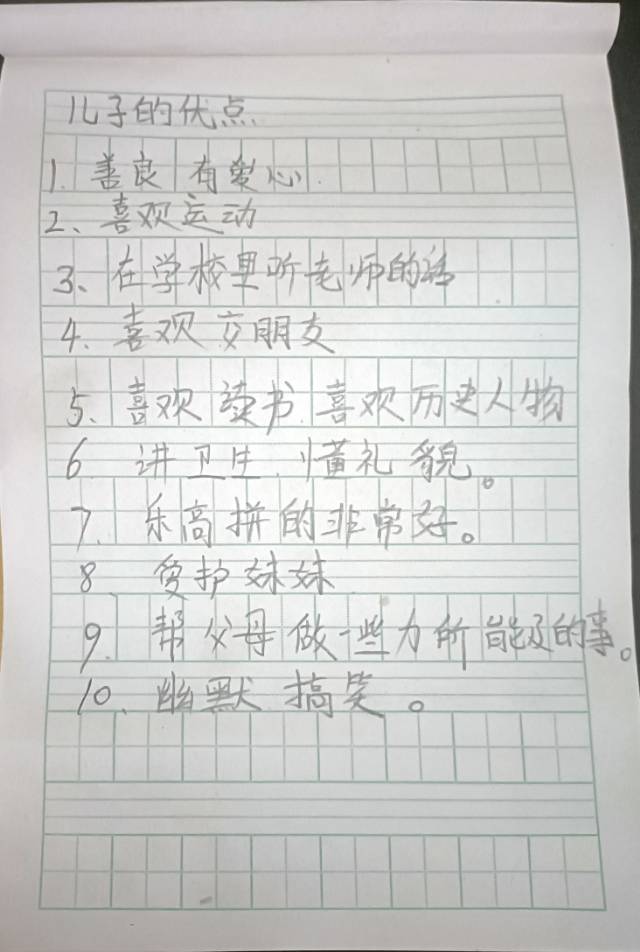 儿子的优点
1. 善良 有爱心.
2、喜欢运动
3、在学校里听老师的话
4. 喜欢 交朋友
5、喜欢 读书. 喜欢历史人物
6 讲卫生. 懂礼貌。
7. 乐高拼的非常好。
8. 爱护妹妹
9. 帮父母做一些力所能及的事。
10、幽默 搞笑。